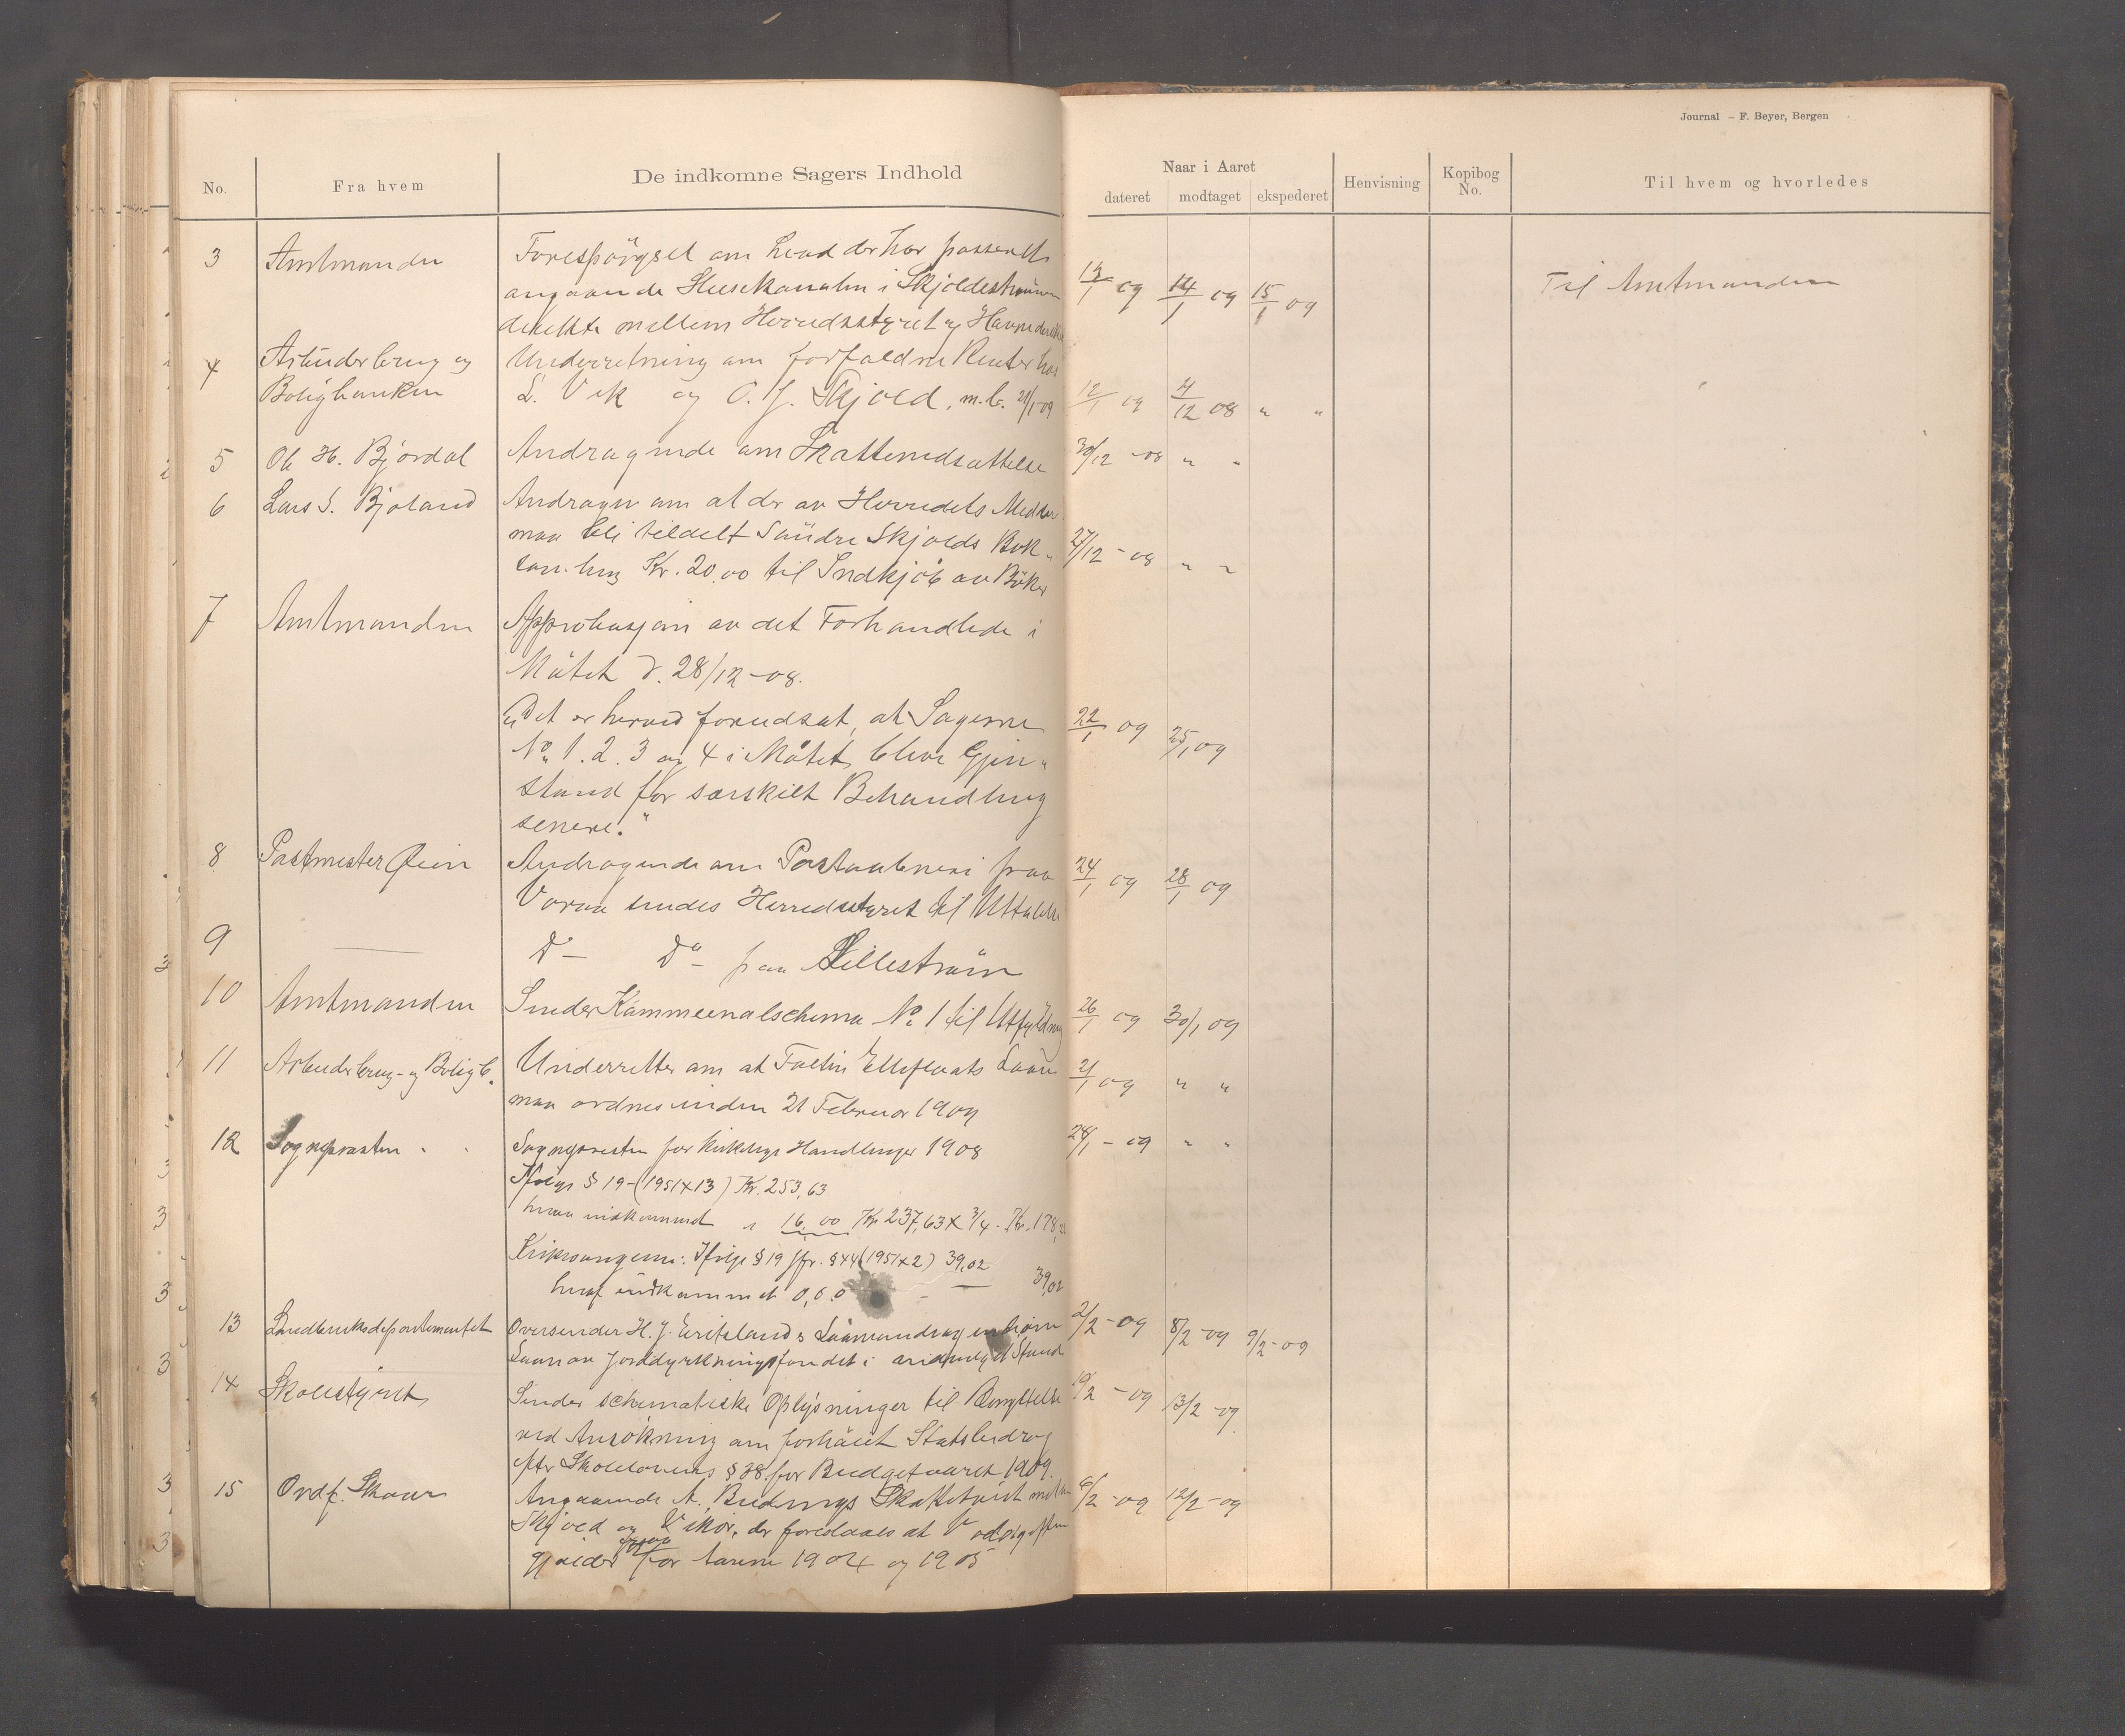 Journal – F. Beyer, Bergen
No. Fra hvem De indkomne Sagers Indhold Naar i Aaret Henvisning Kopibog No. Til hvem og hvorledes
dateret modtaget ekspederet
3 Amtmanden Forespørgsel om hvad der har passeret
angaaende Slusekanalen i Skjoldestrømmen 13/1 09 14/1 09 15/1 09 Til Amtmanden
mellem Herredsstyret og
4 Arbeiderbrug og Underretning om forfaldne Renter hos
Boligbanken L. Vik og O. J. Skjold, m.b. 21/1 09 12/1 09 4/12 08 " "
5 Ole H. Bjordal Andragende om Skattenedsættelse 30/12 -08 " "
6 Lars S. Bjoland Andrager om at der av Herredets Midler
maa bli tildelt Søndre Skjolds Bok- 27/12 -08 " "
Kr. 20.00 til Indkjøb av Bøker
7 Amtmanden Approbasjon av det Forhandlede i
Møtet d. 28/12-08.
"Det er herved forudsat, at Sagerne 22/1 09 25/1 09
No. 1. 2. 3 og 4 i Møtet blive Gjen-
stand for særskilt Behandling
senere."
8 Postmester Øien Andragende om Postaabneri paa 24/1 09 28/1 09
Voraa sendes Herredsstyret til Uttalelse
9 — Do — Do — paa Lillestrøm
10 Amtmanden Sender Kommunalschema No. 1 til Utfyldning 26/1 09 30/1 09
11 Arbeiderbrug- og Boligb. Underretter om at Laan 2/1 09 " "
maa ordnes inden 21 Februar 1909
12 Sognepresten Sognepresten for kirkelige Handlinger 1908 28/1 - 09 " "
Ifølge § 19-(1951x13) Kr. 253,63
herav indkommet " 16.00 Kr 237,63 x 3/4 - Kr. 178,
Kirkesangeren: Ifølge § 19 jfr. § 44 (1951x2) 39,02
heraf indkommet 0,00 — 39,02
13 Landbruksdepartementet Oversender H. J. Laaneandragende 2/2 - 09 8/2 -09 9/2 -09
Laan av Jorddyrkningsfondet i Stand
14 Skolestyret Sender schematiske Oplysninger til Benyttelse 10/2 - 09 13/2 -09
ved Ansøkning om forhøiet Statsbidrag
efter Skolelovens § for Budgetaaret 1909.
15 Ordf. Skaar Angaaende A. Skattetvist mellem 6/2 -09 12/2 -09
Skjold og Vikør, der foreslaaes at V
gjælder for Aarene 1904 og 1905